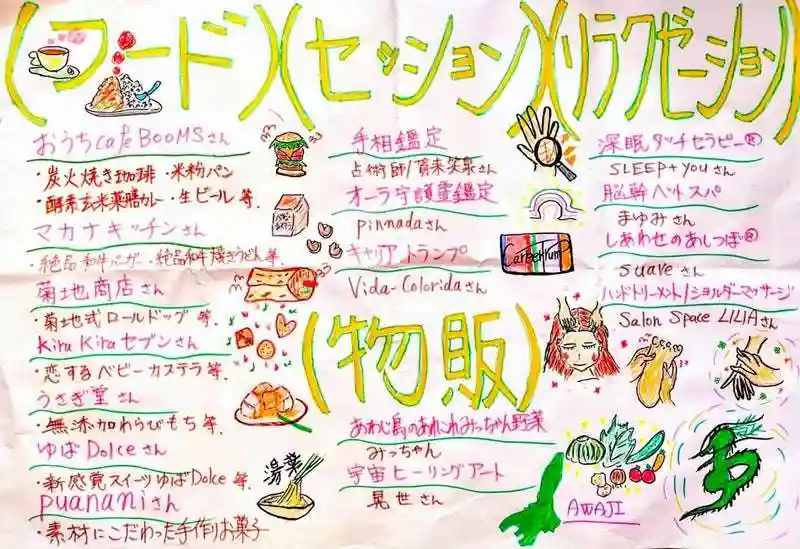 (フード)
おうちcafe BOOMSさん
・炭火焼き珈琲 ・米粉パン
・酵素玄米薬膳カレー ・生ビール 等.
マカナキッチンさん
・絶品和牛バーガー ・絶品和牛焼きうどん 等.
菊地商店さん
・菊地式ロールドッグ 等.
Kira Kiraセブンさん
・恋するベビーカステラ等.
うさぎ堂さん
・無添加わらびもち 等.
ゆばDolceさん
・新感覚スイーツゆばDolce 等.
puananiさん
・素材にこだわった手作りお菓子
湯葉
(セッション)
手相鑑定
占術師/ 未笑泉さん
オーラ守護霊鑑定
pinnadaさん
キャリアトランプ
Vida-Coloridaさん
CareerTrump
(物販)
あわじ島のあれこれみっちゃん野菜
みっちゃん
宇宙ヒーリングアート
晃世さん
AWAJI
(リラクゼーション)
深眠タッチセラピー®
SLEEP+youさん
脳幹ヘッドスパ
まゆみさん
しあわせのあしつぼ®
suaveさん
ハンドトリートメント/ショルダーマッサージ
Salon Space LILIAさん